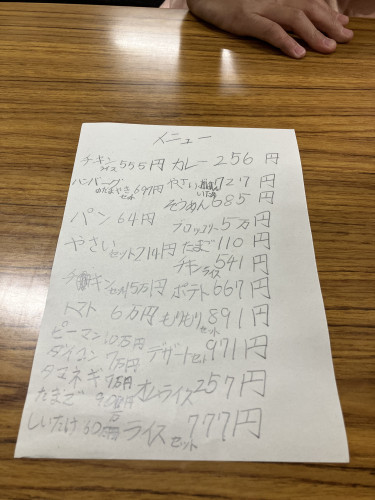 メニュー
チキンライス 555円 カレー 256円
ハンバーグ めだまやきセット 697円 やさいいため 727円
そうめん 685円
パン 64円 ブロッコリー 5万円
やさいセット 214円 たまご 110円
チキンライス 541円
チキンセット 5万円 ポテト 667円
トマト 6万円 もりもりセット 891円
ピーマン 10万円
ダイコン 7万円 デザートセット 971円
タマネギ 9万円 オムライス 257円
たまご 900円
しいたけ 60円 ライスセット 777円